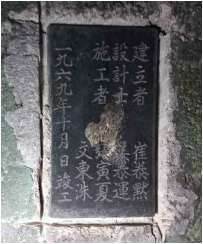 建立者 崔泰黙
設計士 泰運
施工者 寅夏
文東洙
一九六九年十月 日 竣工